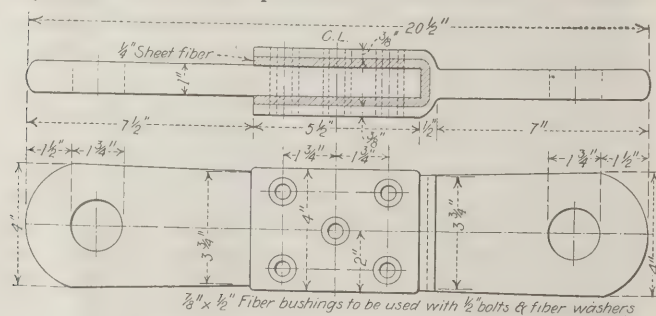 20 ½"
C.L.
⅜"
¼" Sheet fiber
1"
7 ½"
5 ½"
½"
7"
⅜"
1 ½"
1 ¾"
1 ¾"
1 ¾"
1 ¾"
1 ½"
4"
3 ¾"
4"
2"
3 ¾"
4"
⅞" x ½" Fiber bushings to be used with ½" bolts & fiber washers